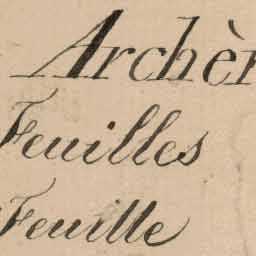 Archèr
Feuilles
Feuille